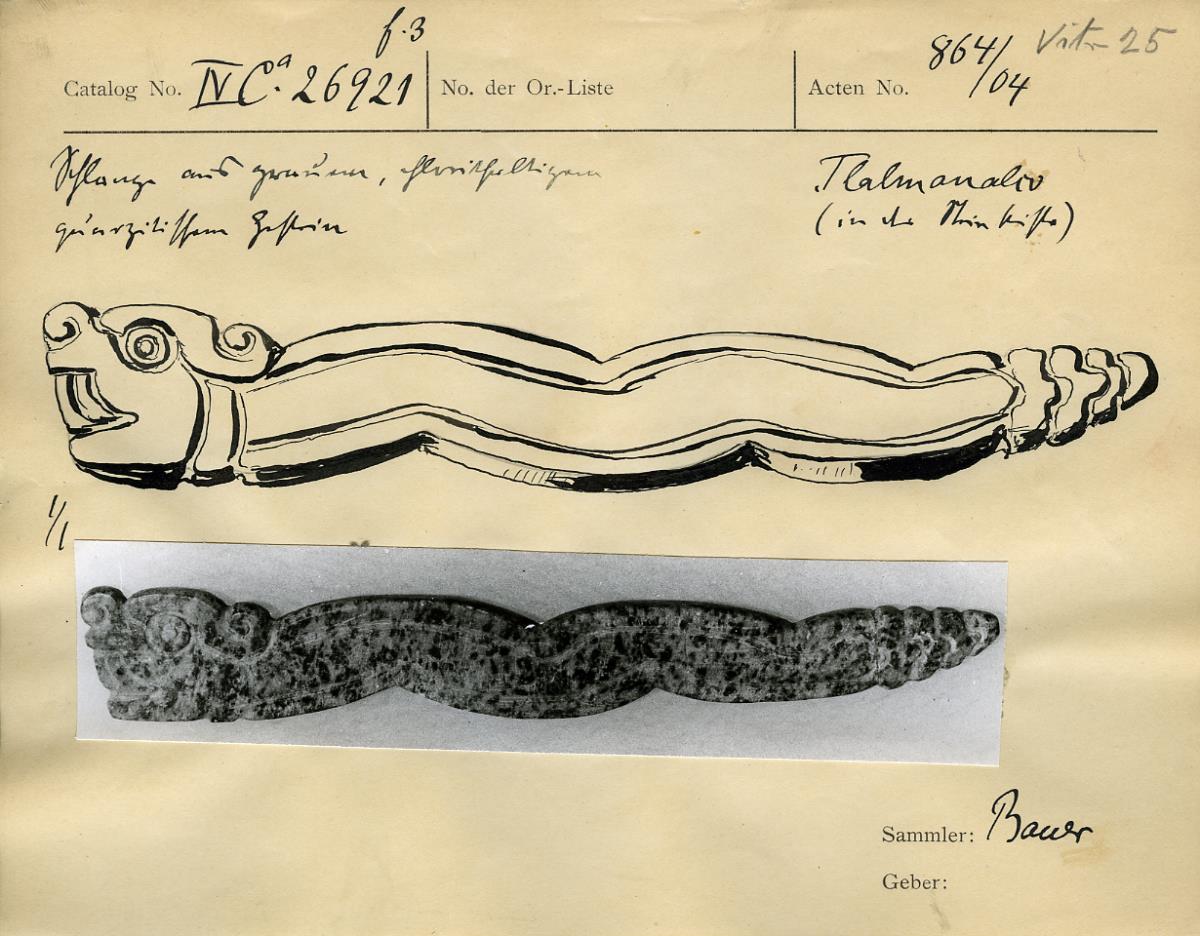 f. 3
Catalog No. IV Ca. 26921
No. der Or.-Liste
Acten No. 864/04
Vitr 25
Schlange aus grauem, chlorithaltigem
quarzitischem Gestein
Tlalmanalco
(in der Steinkiste)
1/1
Sammler: Bauer
Geber: